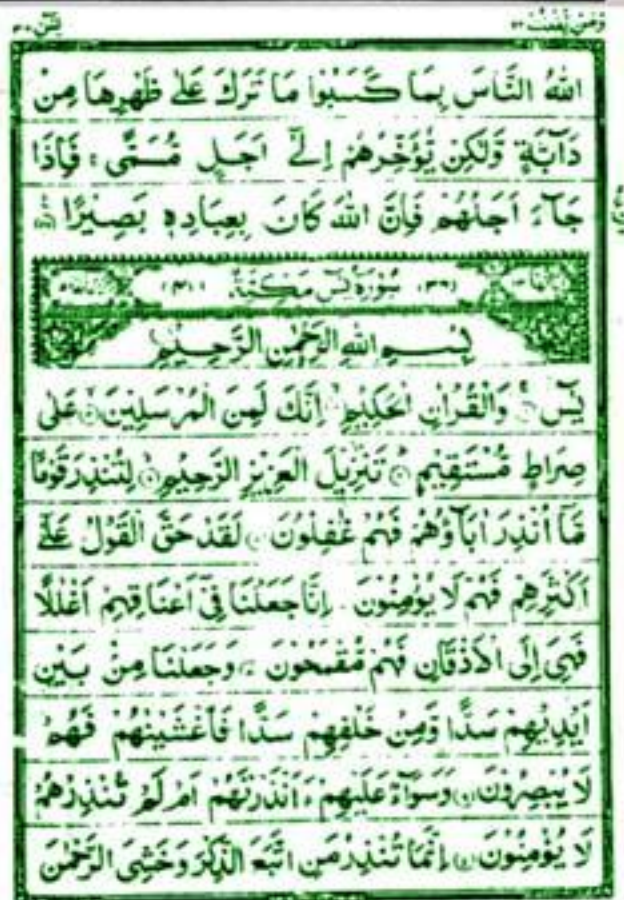 وَمَنْ يَّقْنُتْ ٢٢ يٰسٓ ٣٦
اللهُ النَّاسَ بِمَا كَسَبُوْا مَا تَرَكَ عَلٰى ظَهْرِهَا مِنْ
دَآبَّةٍ وَّلٰكِنْ يُّؤَخِّرُهُمْ اِلٰٓى اَجَلٍ مُّسَمًّى ۚ فَاِذَا
جَآءَ اَجَلُهُمْ فَاِنَّ اللهَ كَانَ بِعِبَادِهٖ بَصِيْرًا
(٣٦) سُوْرَةُ يٰسٓ مَكِّيَّةٌ (٤١)
بِسْمِ اللهِ الرَّحْمٰنِ الرَّحِيْمِ
يٰسٓ وَالْقُرْاٰنِ الْحَكِيْمِ اِنَّكَ لَمِنَ الْمُرْسَلِيْنَ عَلٰى
صِرَاطٍ مُّسْتَقِيْمٍ تَنْزِيْلَ الْعَزِيْزِ الرَّحِيْمِ لِتُنْذِرَ قَوْمًا
مَّآ اُنْذِرَ اٰبَآؤُهُمْ فَهُمْ غٰفِلُوْنَ لَقَدْ حَقَّ الْقَوْلُ عَلٰٓى
اَكْثَرِهِمْ فَهُمْ لَا يُؤْمِنُوْنَ اِنَّا جَعَلْنَا فِىْٓ اَعْنَاقِهِمْ اَغْلٰلًا
فَهِىَ اِلَى الْاَذْقَانِ فَهُمْ مُّقْمَحُوْنَ وَجَعَلْنَا مِنْۢ بَيْنِ
اَيْدِيْهِمْ سَدًّا وَّمِنْ خَلْفِهِمْ سَدًّا فَاَغْشَيْنٰهُمْ فَهُمْ
لَا يُبْصِرُوْنَ وَسَوَآءٌ عَلَيْهِمْ ءَاَنْذَرْتَهُمْ اَمْ لَمْ تُنْذِرْهُمْ
لَا يُؤْمِنُوْنَ اِنَّمَا تُنْذِرُ مَنِ اتَّبَعَ الذِّكْرَ وَخَشِىَ الرَّحْمٰنَ